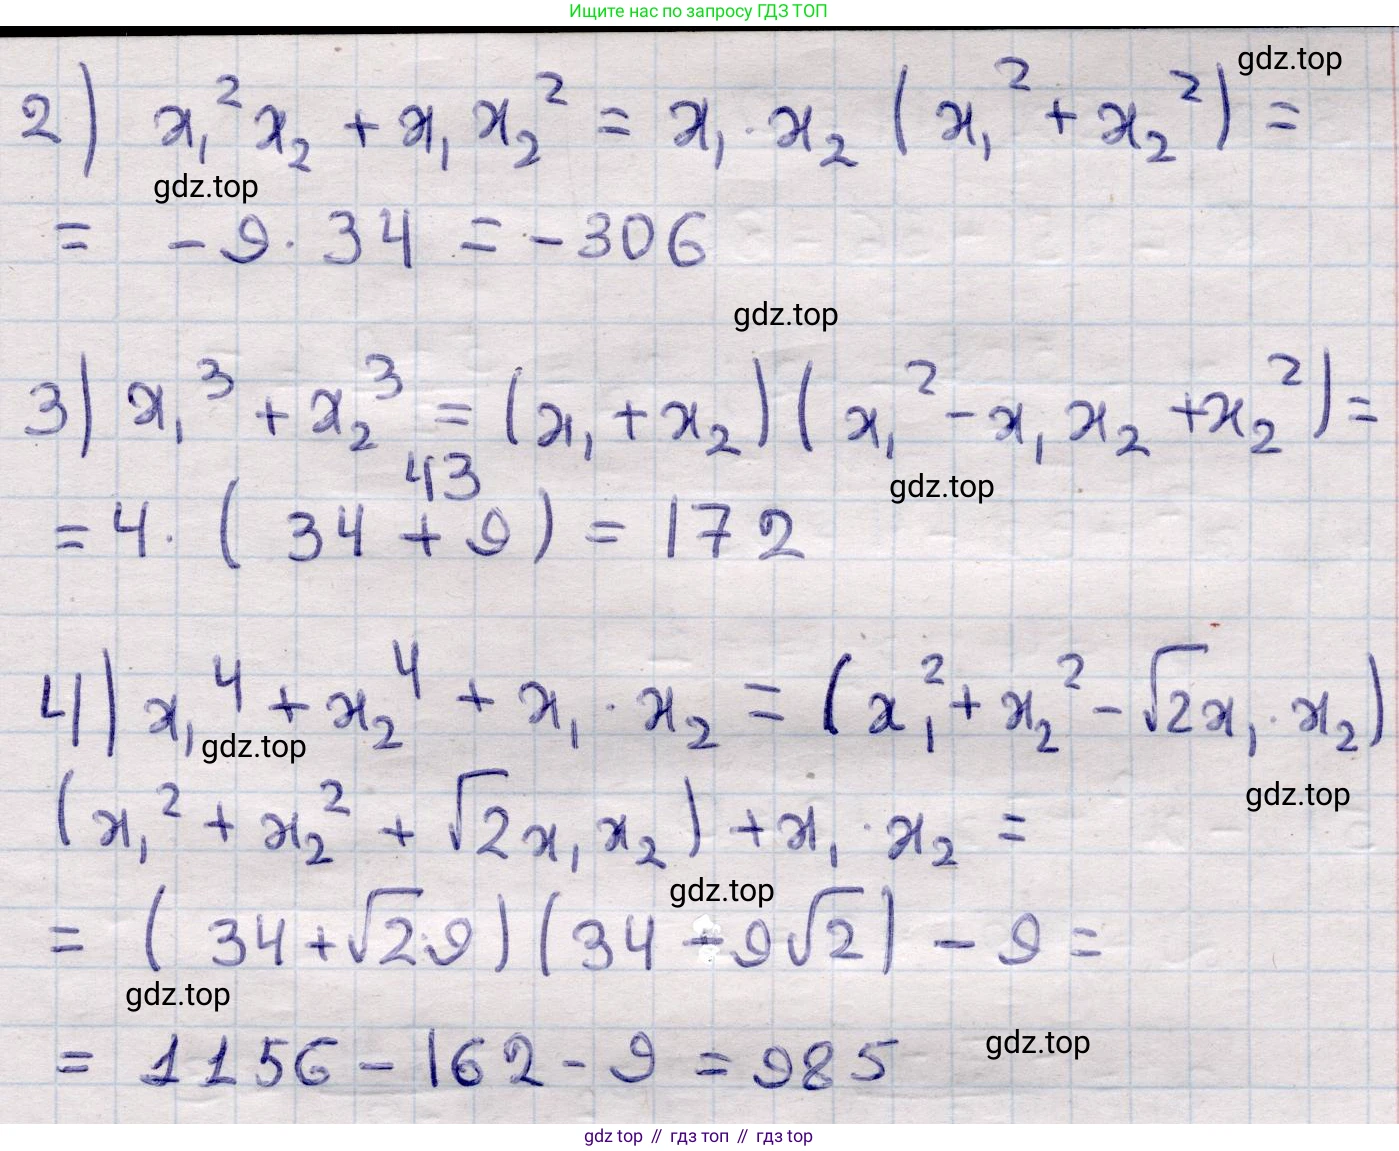 Ищите нас по запросу ГДЗ ТОП
gdz.top
2) x₁²x₂ + x₁x₂² = x₁·x₂(x₁² + x₂²) =
gdz.top
= -9·34 = -306
gdz.top
3) x₁³ + x₂³ = (x₁ + x₂)(x₁² - x₁x₂ + x₂²) =
43
gdz.top
= 4·(34 + 9) = 172
4) x₁⁴ + x₂⁴ + x₁·x₂ = (x₁² + x₂² - √2x₁·x₂)
gdz.top
gdz.top
(x₁² + x₂² + √2x₁x₂) + x₁·x₂ =
gdz.top
= (34 + √2·9)(34 - 9√2) - 9 =
gdz.top
gdz.top
= 1156 - 162 - 9 = 985
gdz top // гдз топ // гдз top